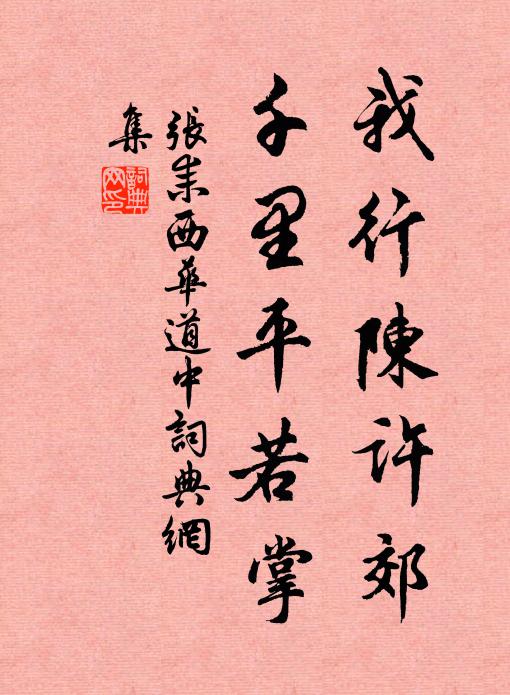 我行陳許郊
千里平若掌
張耒西華道中詞典網
集
詞典
网印